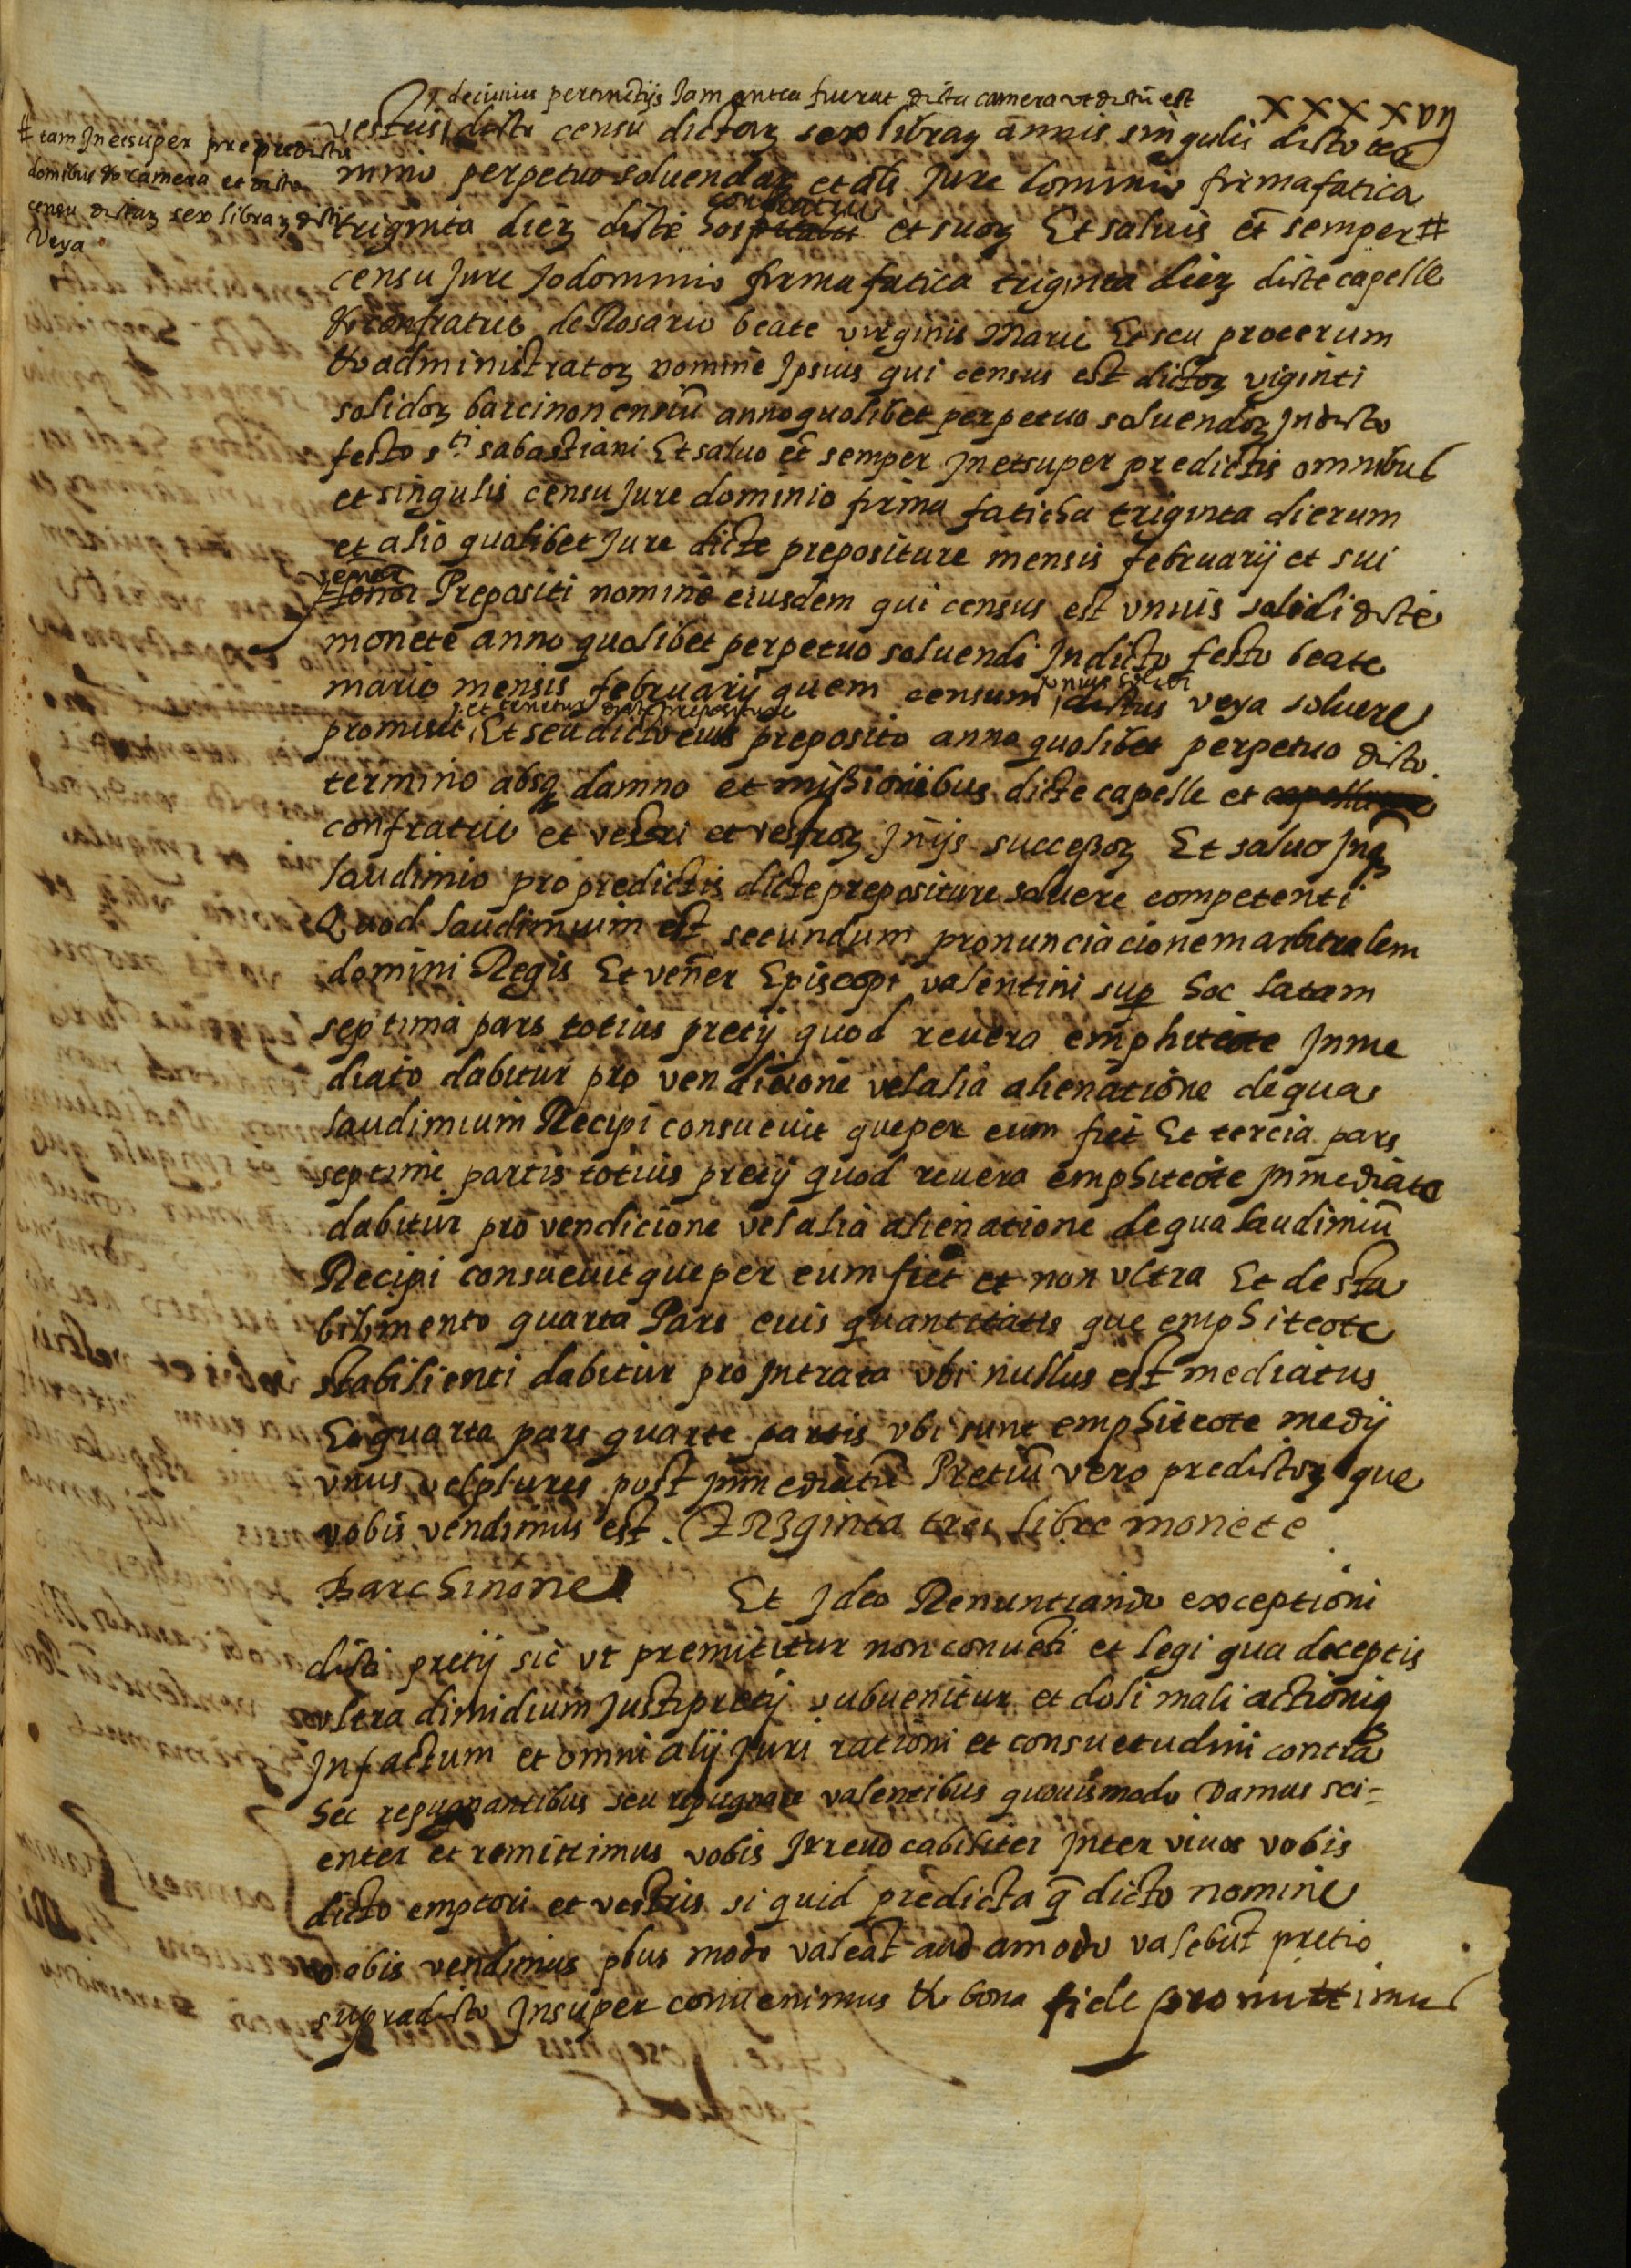 XXXXVII
decimius pertinetijs Jam antea fuerat dicta camera vt dictū est
vestris dicti censu dictaꝝ sex libraꝝ annis singulis dicto ter
# tam Jn etsuper pre predictis
domibus & camera et dicto
censu dictaꝝ sex libraꝝ dicti
Veya
mino perpetuo soluendaꝝ et alÿ Jure dominio firma fatica
confratrie
triginta dieꝝ dicte hospitalis et suoꝝ Et saluis et̄ semper #
censu Jure Jo dominio firma fatica triginta dieꝝ dicte capelle
& confratrie de Rosario beate virginis Marie Et seu procerum
& administratoꝝ nomine Jpsius qui census est dictoꝝ viginti
solidoꝝ barcinonensiū anno quolibet perpetuo soluendoꝝ Jn dicto
festo sti sabastiani Et saluo et̄ semper Jn etsuper predictis omnibus
et singulis censu Jure dominio firma faticha triginta dierum
et alio quolibet Jure dicte prepositure mensis februarij et sui
vener
honor Prepositi nomine eiusdem qui census est vnius solidi dicte
monete anno quolibet perpetuo soluendi Jn dicto festo beate
marie mensis februarij quem censum dictus veya soluere
vnius solidi
et tenetur dicte prepositure
promisit Et seu dicto eius preposito anno quolibet perpetuo dicto
termino absq damno et mißionibus dicte capelle et
confratrie et vestri et vestroꝝ Jn ijs succeßoꝝ Et saluo Jnq
laudimio pro predictis dicte prepositure soluere competenti
Quod laudimium est secundum pronunciacionem arbitralem
domini Regis Et vener Episcopi valentini sup hoc latam
septima pars totius pretij quod reuera emphiteote Jnme
diato dabitur pro vendicione vel alia alienatione de qua
laudimium Recipi consueuit que per eum fiet Et tercia pars
septimi partis totius pretij quod reuera emphiteote Jnmediate
dabitur pro vendicione vel alia alienatione de qua laudimiū
Recipi consueuit que per eum fiet et non vltra Et de sta
bilimento quarta Pars euis quantitatis que emphiteote
stabilienti dabitur pro Jntrata vbi nullus est mediatus
Et quarta pars quarte partis vbi sunt emphiteote medij
vnus vel plures post Jnmediatū Pretiū vero predictoꝝ que
vobis vendimus est. TRIginta tres libre monete
Barchinone Et Jdeo Renuntiando exceptioni
dicti pretij sic vt premititur non conueti et legi qua deceptis
vltra dimidium Justi pretij subuenitur et doli mali actioniq
Jn factum et omni alij Juri rationi et consuetudini contra
hec repugnantibus seu repugnare valentibus quouismodo Damus sci-
enter et remittimus vobis Jrreuocabiliter Jnter viuos vobis
dicto emptori et vestris si quid predicta q̄ dicto nomine
vobis vendimus plus modo valeāt aud amodo valebūt pretio
supradicto Jnsuper conuenimus & bona fide promittimus